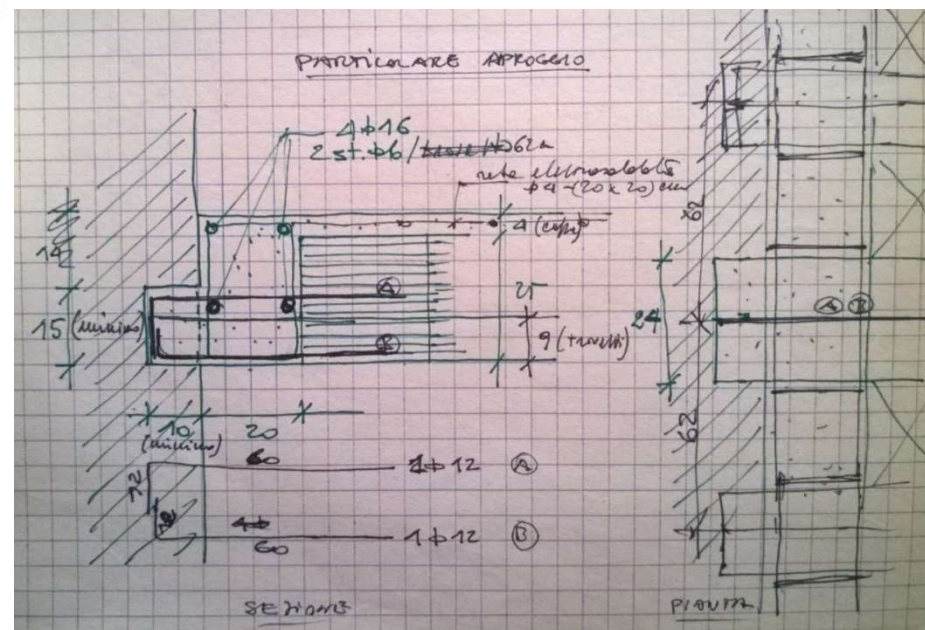 PARTICOLARE APPOGGIO
4ϕ16
2 st. ϕ6/ 62
rete elettrosaldata
ϕ4-(20x20)cm
4 (cappa)
14
A
25
15 (minimo)
9 (travetti)
B
10
20
(minimo)
60
12
1ϕ12 A
60
1ϕ12 B
SEZIONE
62
24
A B
62
PIANTA